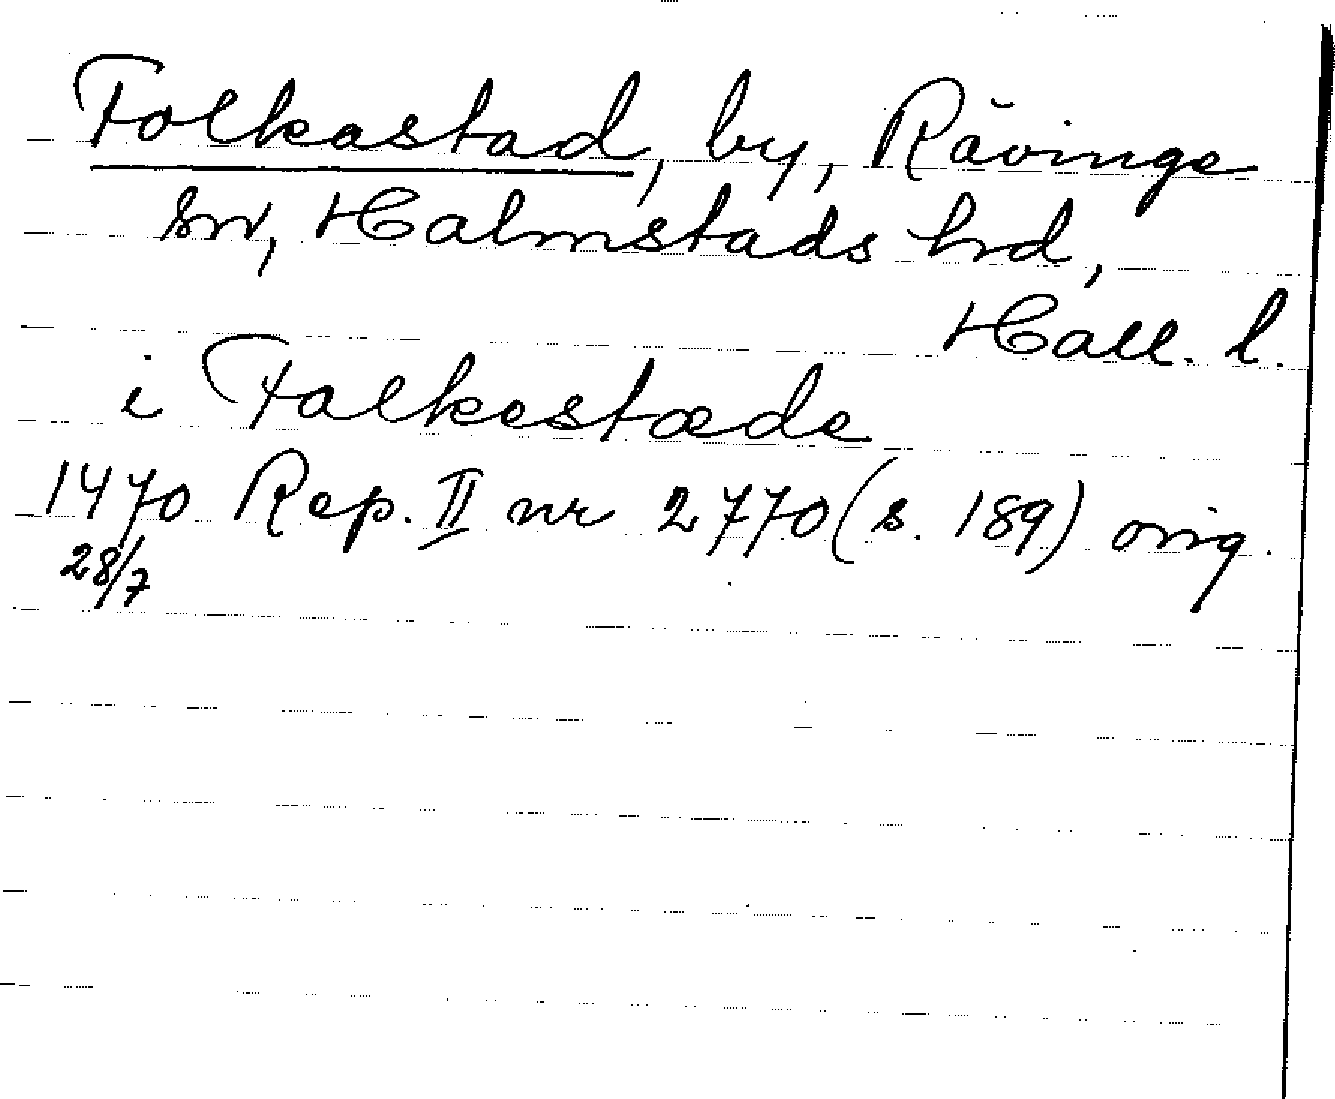 Folkastad, by, Rävinge
sn, Halmstads hrd,
Hall. l.
i Falkestæde
1470 Rep. II nr 2770 (s. 189) orig.
28/7